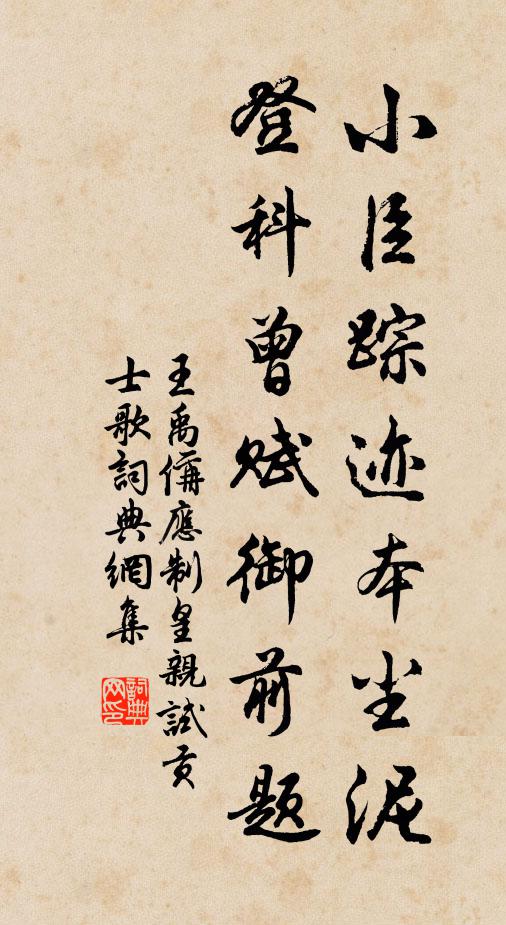 小臣踪迹本尘泥
登科曾赋御前题
王禹偁應制皇親試貢
士歌詞典網集
詞典网印